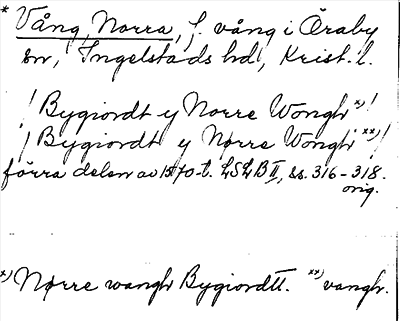 * Vång, Norra, f. vång i Öraby
sn, Ingelstads hd, Krist. l.
! Bygiordt y Norre Wongh *) !
! Bygiordt y Nørre Wongh **) !
förra delen av 1570-t. LSLB II, ss. 316-318.
orig.
*) Nørre wangh Bygiordtt. **) vangh.